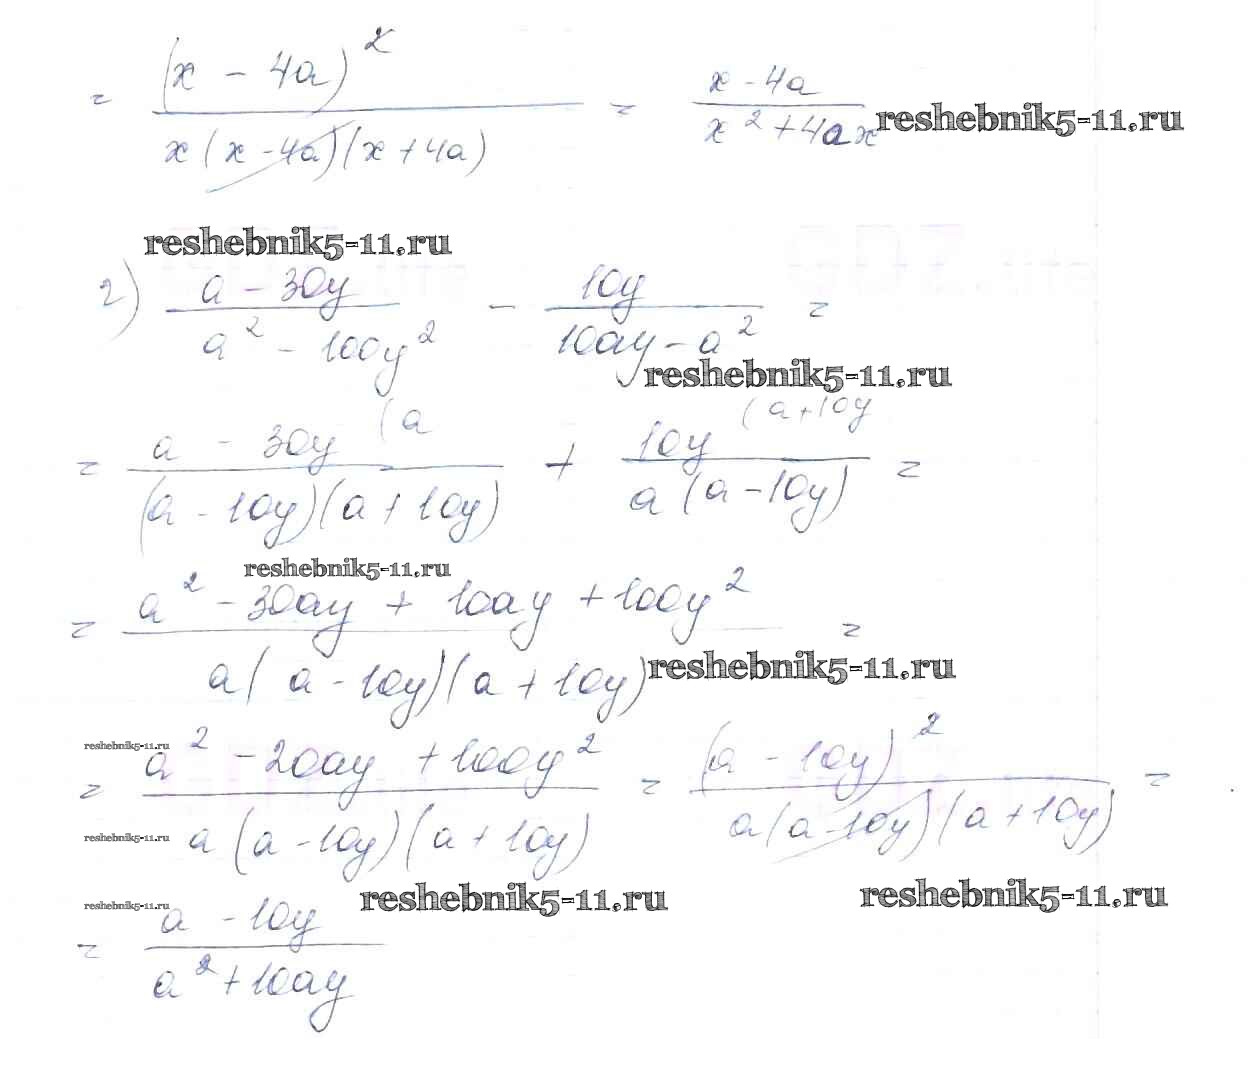 = (x - 4a)^2 / x(x-4a)(x+4a) = x-4a / x^2+4ax reshebnik5-11.ru
reshebnik5-11.ru
2) a - 30y / a^2 - 100y^2 - 10y / 10ay - a^2 =
reshebnik5-11.ru
= a - 30y (a / (a - 10y)(a + 10y) + 10y (a+10y / a(a-10y) =
reshebnik5-11.ru
= a^2 - 30ay + 10ay + 100y^2 / a(a-10y)(a+10y) =
reshebnik5-11.ru
reshebnik5-11.ru
= a^2 - 20ay + 100y^2 / a(a-10y)(a+10y) = (a - 10y)^2 / a(a-10y)(a+10y) =
reshebnik5-11.ru
reshebnik5-11.ru reshebnik5-11.ru reshebnik5-11.ru
= a - 10y / a^2 + 10ay